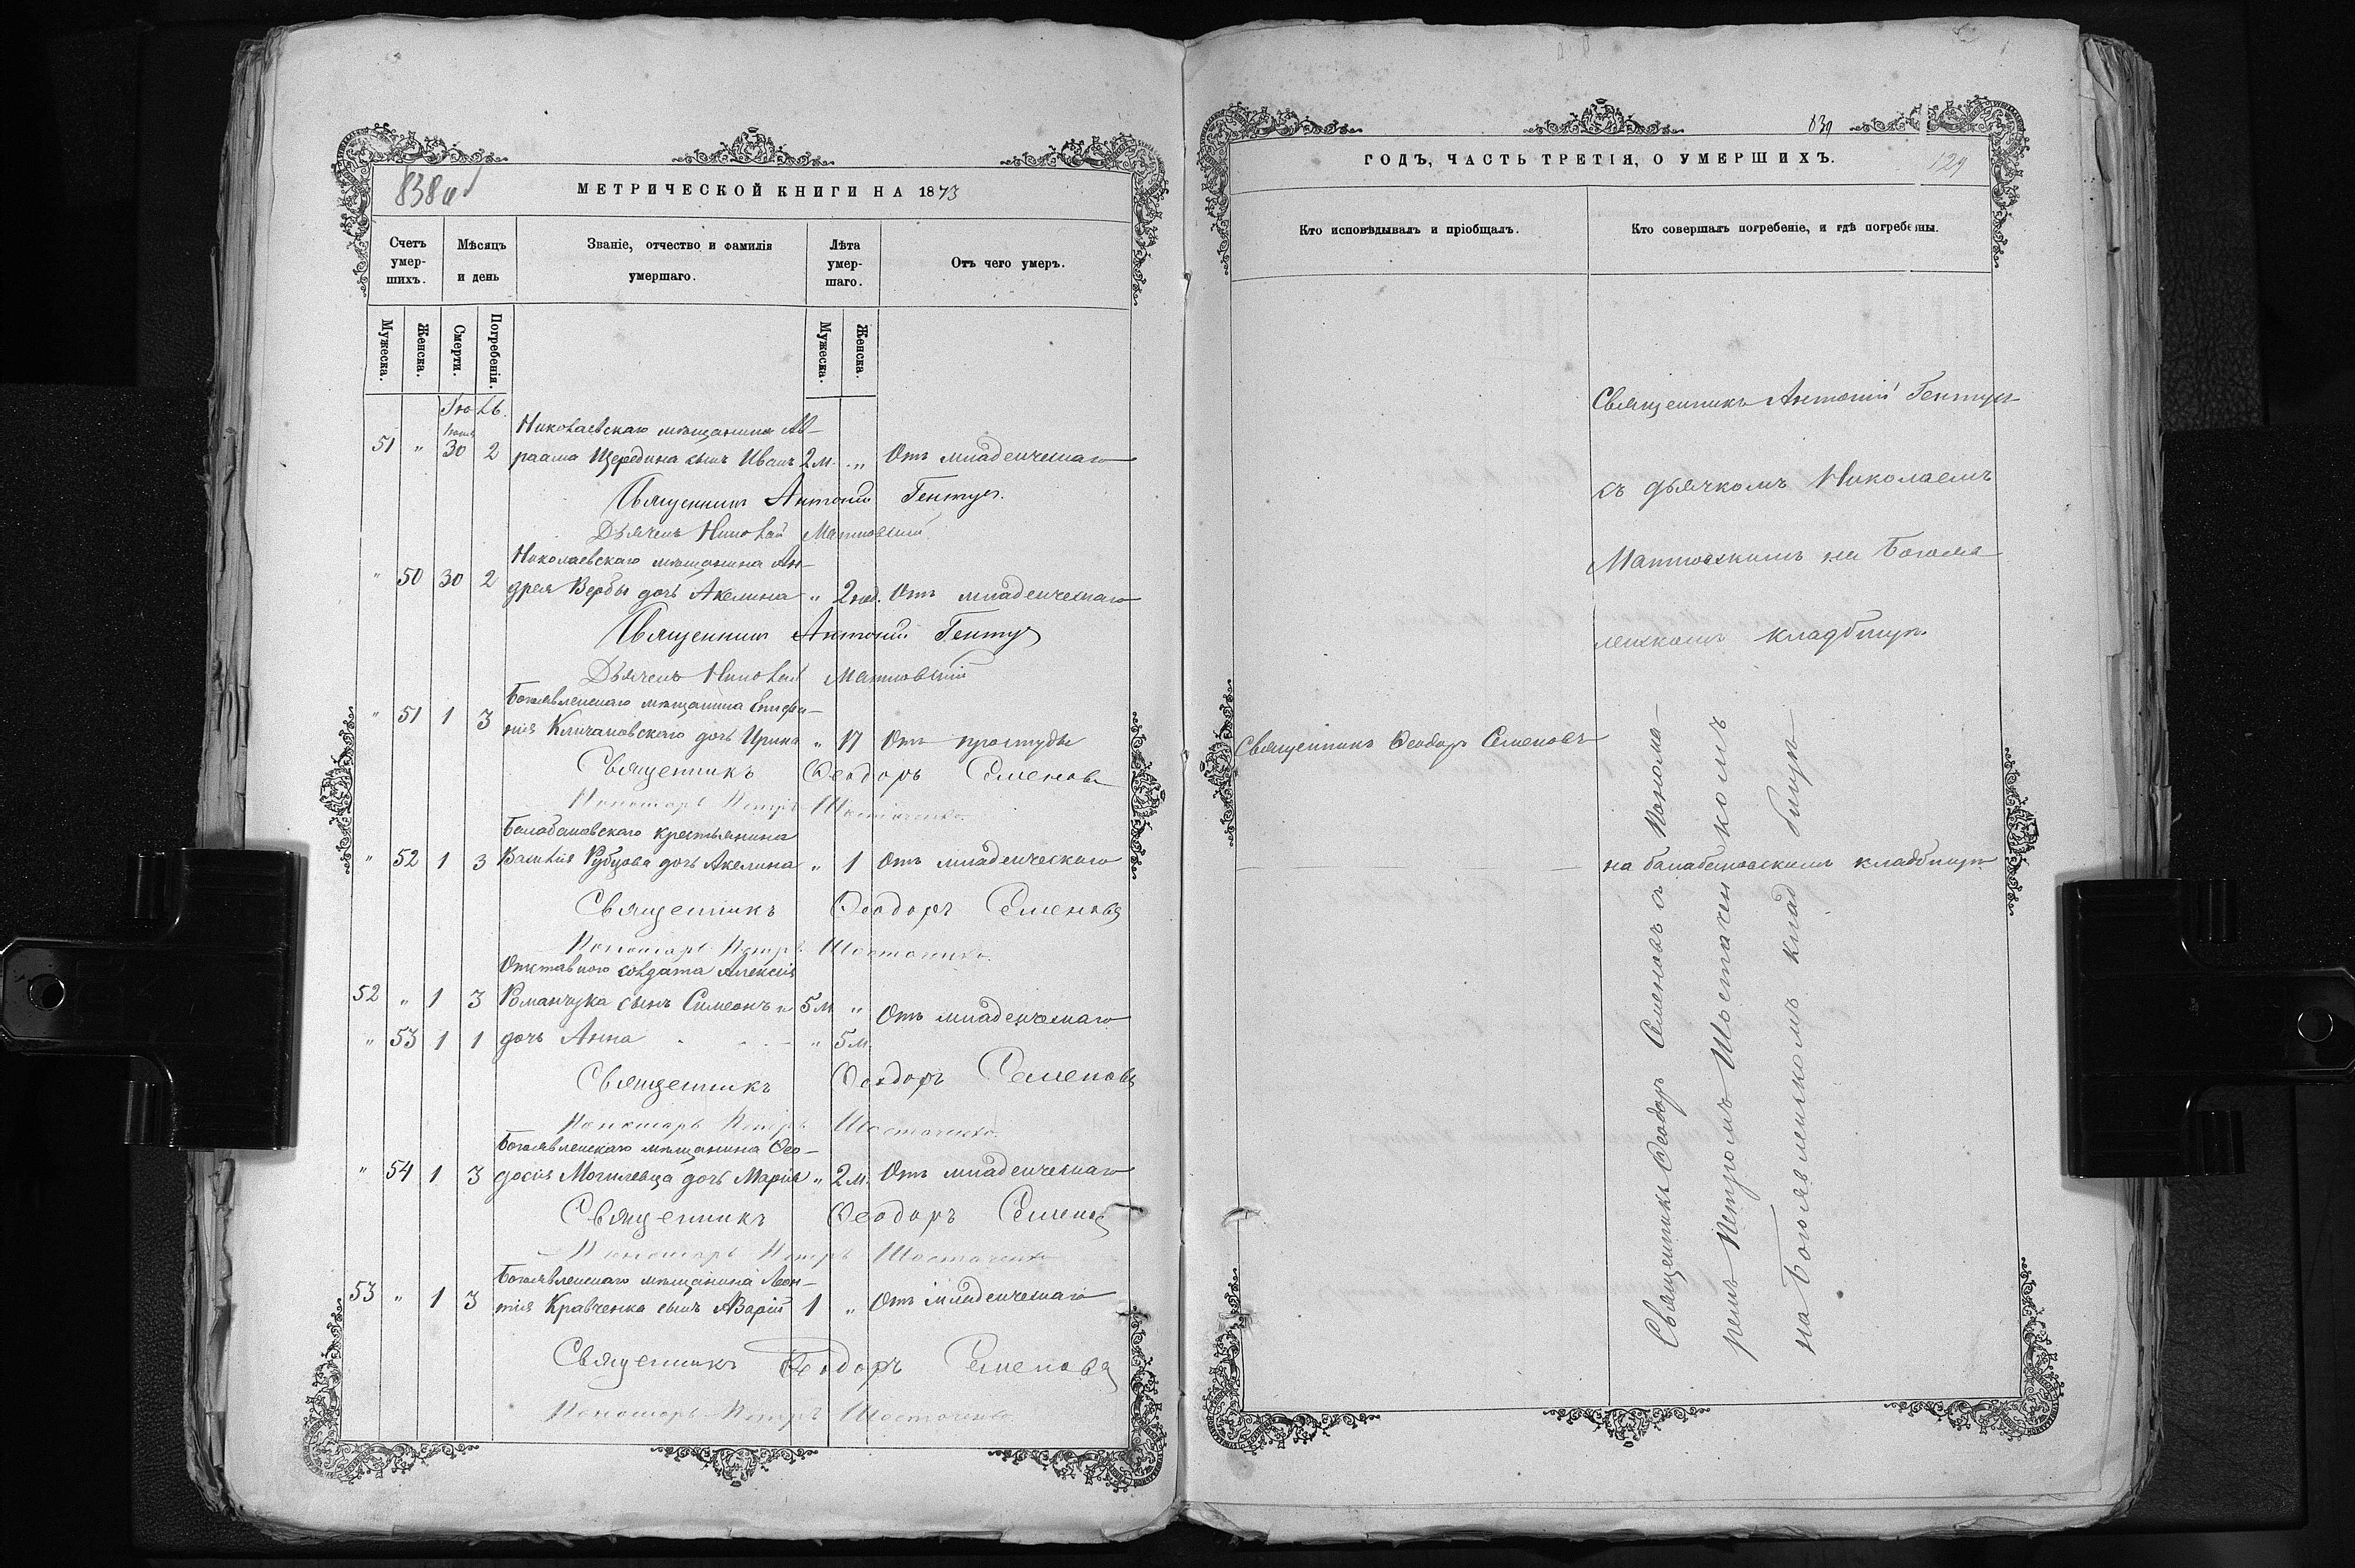 838 об
МЕТРИЧЕСКОЙ КНИГИ НА 1873
Счетъ умер-шихъ.
Мѣсяцъ и день
Званіе, отчество и фамилія умершаго.
Лѣта умер-шаго.
Отъ чего умеръ.
Мужеска.
Женска.
Смерти.
Погребенія.
Мужеска.
Женска.
Іюль.
Николаевскаго мѣщанина Ав-
51 " 30 2 раама Щередина сынъ Иванъ 2 м. " Отъ младенческаго
Священникъ Антоній Гентуз
Дьячекъ Николай
Николаевскаго мѣщанина Ан-
" 50 30 2 дрея Вербы дочь Акелина " 2 нед. Отъ младенческаго
Священникъ Антоній
Дьячекъ Николай
Богоявленскаго мѣщанина Епифа-
" 51 1 3 нія Кличановскаго дочь Ирина " 17 Отъ простуды
Священникъ Ѳеодоръ Семеновъ
Пономарь Петръ Шостаченко
Балабановскаго крестьянина
" 52 1 3 Василія Рубцова дочь Акелина " 1 Отъ младенческаго
Священникъ Ѳеодоръ Семеновъ
Пономарь Петръ Шостаченко
Отставного солдата Алексія
52 " 1 3 Романчука сынъ Симеонъ и 5 м " Отъ младенческаго
" 53 1 1 дочь Анна " 5 м.
Священникъ Ѳеодоръ Семеновъ
Пономарь Петръ Шостаченко
Богоявленскаго мѣщанина Ѳео-
" 54 1 3 досія Могилевца дочь Марія " 2 м. Отъ младенческаго
Священникъ Ѳеодоръ Семеновъ
Пономарь Петръ Шостаченко
Богоявленскаго мѣщанина Леон-
53 " 1 3 тія Кравченка сынъ Азарій 1 " Отъ младенческаго
Священникъ Ѳеодоръ Семеновъ
Пономарь Петръ Шостаченко
839
ГОДЪ, ЧАСТЬ ТРЕТІЯ, О УМЕРШИХЪ.
129
Кто исповѣдывалъ и пріобщалъ.
Кто совершалъ погребеніе, и гдѣ погребены.
Священникъ Антоній
съ дьячкомъ Николаемъ
на Богояв
ленскомъ кладбищѣ
Священникъ Ѳеодоръ Семеновъ
на балабановскомъ кладбищѣ
Священникъ Ѳеодоръ Семеновъ съ Понома-
ремъ Петромъ Шостаченкомъ
на Богоявленскомъ кладбищѣ